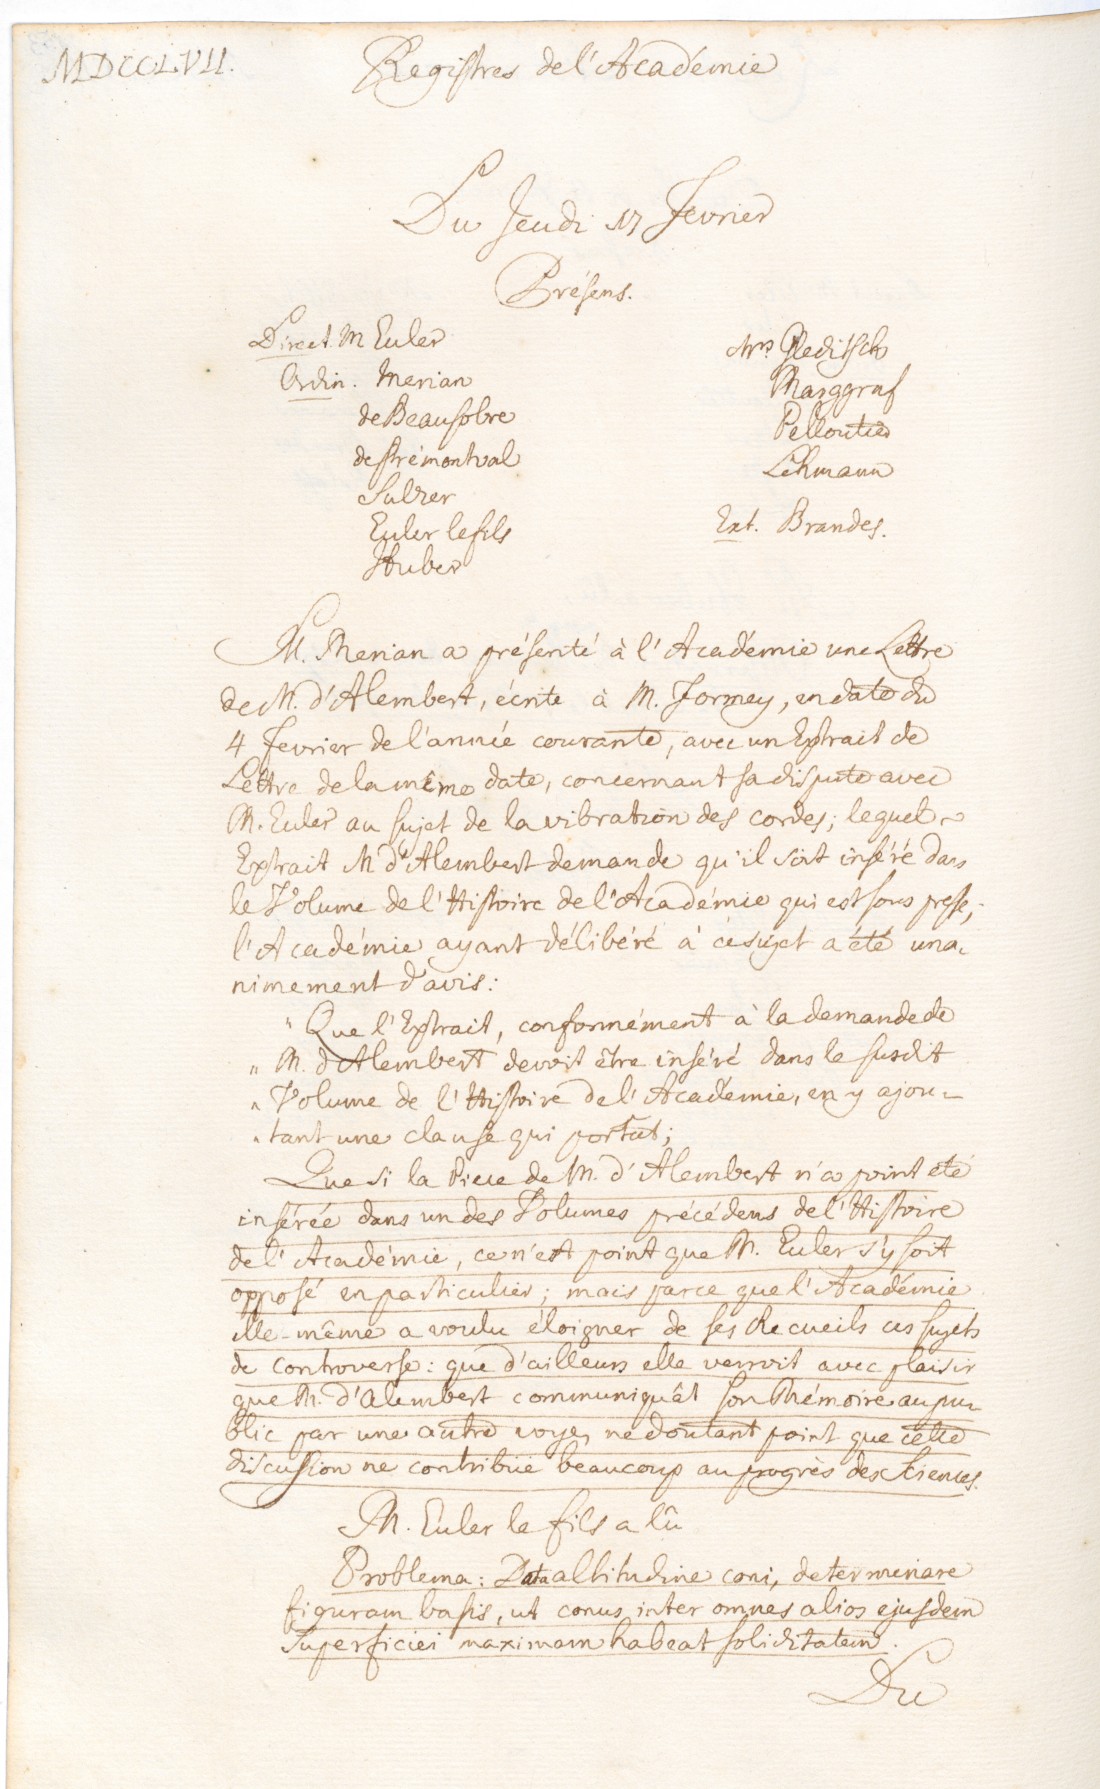 MDCCLVII.
Registres de l'Académie
Du Jeudi 17 Fevrier
Présens.
Direct. M Euler
Ordin. Merian
de Beausobre
de Prémontval
Sulzer
Euler le fils
Huber
Mrs. Gleditsch
Marggraf
Pelloutier
Lehmann
Ext. Brandes.
M. Merian a présenté à l'Académie une Lettre
de M. d'Alembert, écrite à M. Formey, en date du
4 Fevrier de l'année courante, avec un Extrait de
Lettre de la même date, concernant sa dispute avec
M. Euler au sujet de la vibration des cordes; lequel
Extrait M d'Alembert demande qu'il soit inséré dans
le Volume de l'Histoire de l'Académie qui est sous presse;
l'Académie ayant délibéré à ce sujet a été una-
nimement d'avis:
" Que l'Extrait, conformément à la demande de
" M. d'Alembert devoit être inséré dans le susdit
" Volume de l'Histoire de l'Académie, en y ajou-
" tant une clause qui portât;
Que si la Piece de M. d'Alembert n'a point été
insérée dans un des Volumes précédens de l'Histoire
de l'Académie, ce n'est point que M. Euler s'y soit
opposé en particulier; mais parce que l'Académie
elle-même a voulu éloigner de ses Recueils ces sujets
de controverse: que d'ailleurs elle verroit avec plaisir
que M. d'Alembert communiquât son Mémoire au pu-
blic par une autre voye, ne doutant point que cette
discussion ne contribue beaucoup au progrès des Sciences.
M. Euler le fils a lû
Problema: Data altitudine coni, determinare
figuram basis, ut conus inter omnes alios ejusdem
superficiei maximam habeat soliditatem.
Du